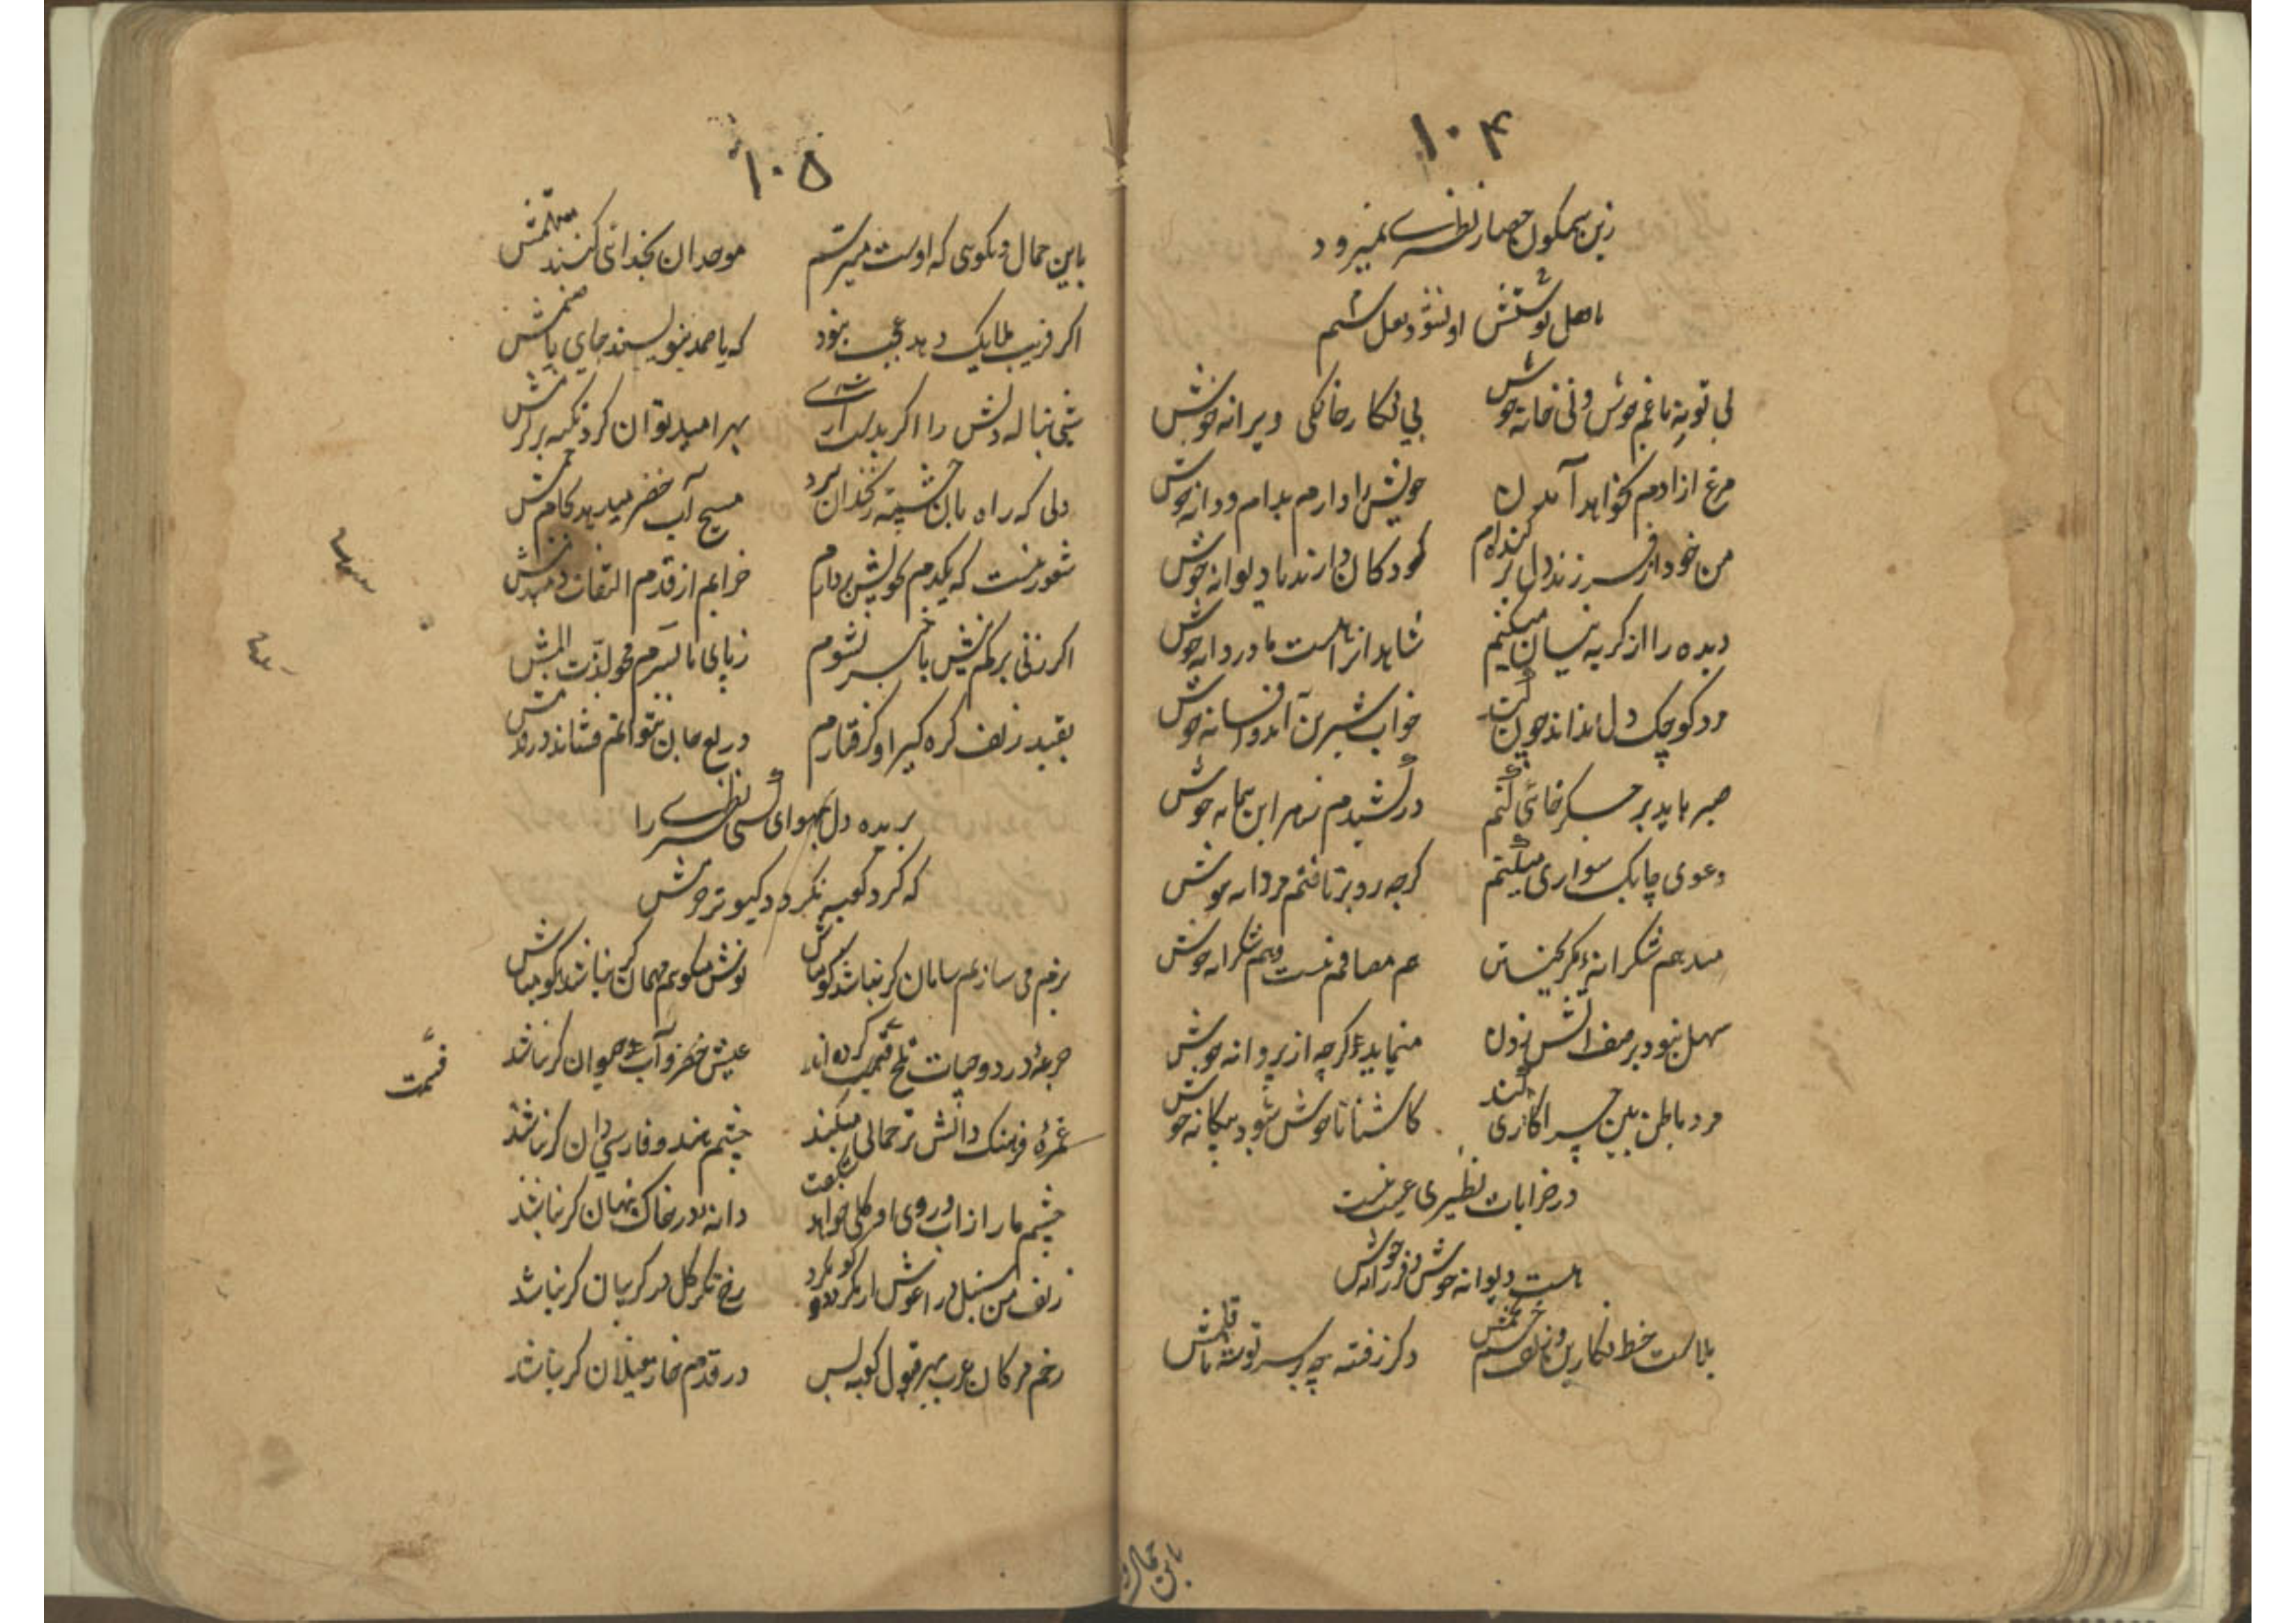 ۱۰۴
زین سبکول حصار نظیری نمیرود
تا هل تو شش او نشود نعل شم
بی تو به با غم خوش و نی خانه خوش
بی نگار خانگی ویرانه خوش
مرغ ازادم نخواهد آمدن
خویش را دارم بدام و دانه خوش
من خود از سر زند دل بر کنده‌ام
کودکان دارند با دیوانه خوش
دیده را از گریه نیسان میکنم
شاهد انرا هست با دردانه خوش
مرد کوچک دل نداند چون گشت
خواب شیرین آمد و افسانه خوش
صبر باید بر جگر خائی کنم
در کشیدم زهر این پیمانه خوش
دعوی چابک سواری میکنم
گرچه رو برتافتم مردانه خوش
میدهم شکرانه گر
هم مصافم نیست هم شکرانه خوش
سهل نبود بر صف اتش زدن
مینماید گرچه از پروانه خوش
مرد باطن بین چرا کاری کند
کاشنا ناخوش شود بیگانه خوش
در خرابات نظیری عیب نیست
هست دیوانه خوش و فرزانه خوش
بلاست خط نگارین و زلف خم بخمش
دگر نرفته چه بر سر نوشته تا قلمش
باین جمال و
۱۰۵
باین جمال و نکوی که اوست میپرستم
موحدان بخدائی کنند متهمش
اگر فریب ملایک دهد عجب نبود
که یا صمد بنویسند جای یا صنمش
شبی بناله دلش را اگر بدست آری
بهر امید توان کرد تکیه بر کرمش
دلی که راه بان چشمه زنخدان برد
مسیح آب خضر میدهد بجام جمش
شعور نیست که یکدم بخویش پردازم
خرابم از قدم التفات دمبدمش
اگر زنی برگم نیش با خبر نشوم
ز پای تا بسرم محو لذت المش
بقید زلف گره گیر او گرفتارم
دریغ جان نتوانم فشاند در قدمش
بریده دل بهوای کسی نظیری را
که گرد کعبه نگردد کبوتر حرمش
بزم می سازم سامان گر نباشد گو مباش
نوش میگویم مهمان گر نباشد گو مباش
جرعهٔ درد و حیات تلخ قسمت کرده‌اند
قسمت
عیش خضر و آب حیوان گر نباشد
غمزهٔ فرهنگ دانش ترجمانی میکند
چشم هند و فارسی دان گر نباشد
چشم ما را زاب و روی او گلی خواهد شگفت
دانه در خاک پنهان گر نباشد
زلف من سنبل در اغوش ار نگردد گو مگرد
رخ نگر گل در گریبان گر نباشد
زخم مژگان عرب بهر قبول کعبه بس
در قدم خار مغیلان گر نباشد